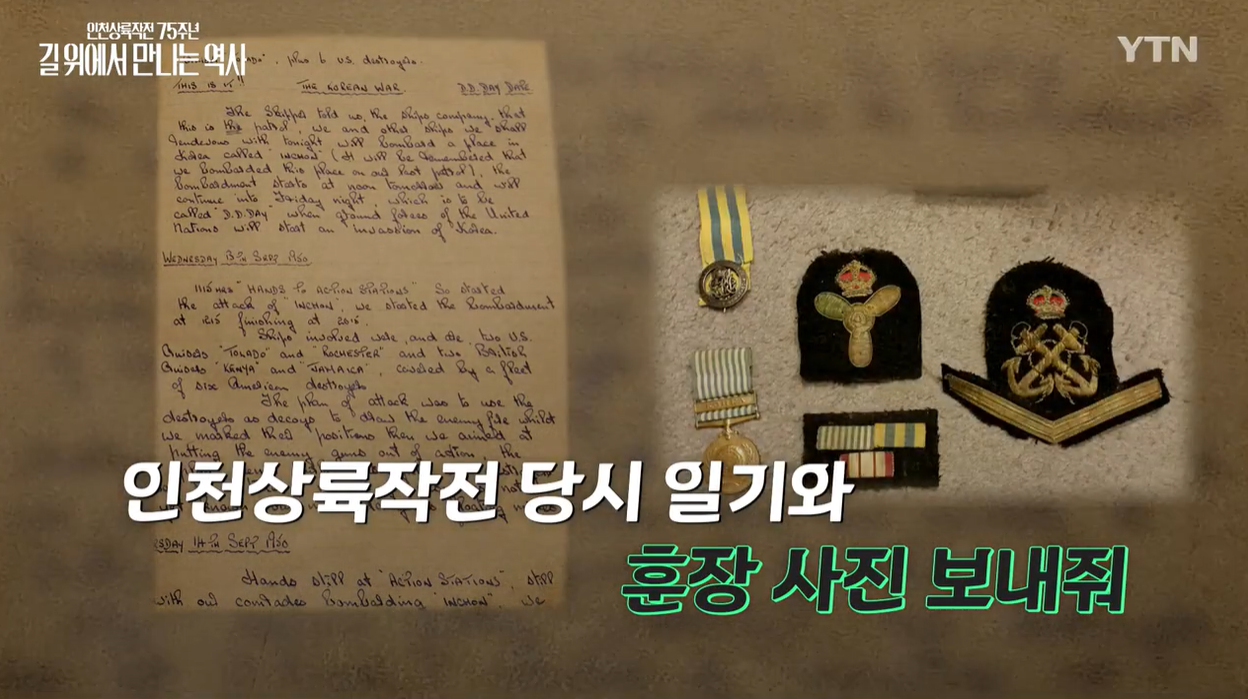 인천상륙작전 75주년
길 위에서 만나는 역사
YTN
plus 6 U.S. destroyers.
THIS IS IT!! THE KOREAN WAR. D.D. DAY DARE
The Skipper told us, the ships company, that
this is the patrol, we and other ships we shall
rendevous with tonight will bombard a place in
Korea called "INCHON" (It will be remembered that
we bombarded this place on our last patrol), the
bombardment starts at noon tomorrow and will
continue into Friday night, which is to be
called "D.D. DAY" when ground forces of the United
Nations will start an invassion of Korea.
WEDNESDAY 13TH SEPT 1950
1115 HRS "HANDS to ACTION STATIONS" So started
the attack of "INCHON", we started the bombardment
at 1215 finishing at 2015.
Ships involved were, and are, two U.S.
Cruisers "TOLADO" and "ROCHESTER" and two British
Cruisers "KENYA" and "JAMAICA", covered by a fleet
of six American destroyers
The plan of attack was to use the
destroyers as decoys to draw the enemy fire whilst
we marked their positions then we aimed at
putting the enemy guns out of action, the
인천상륙작전 당시 일기와
훈장 사진 보내줘
SDAY 14TH SEPT 1950
Hands still at "ACTION STATIONS", still
with our comrades bombarding "INCHON". We